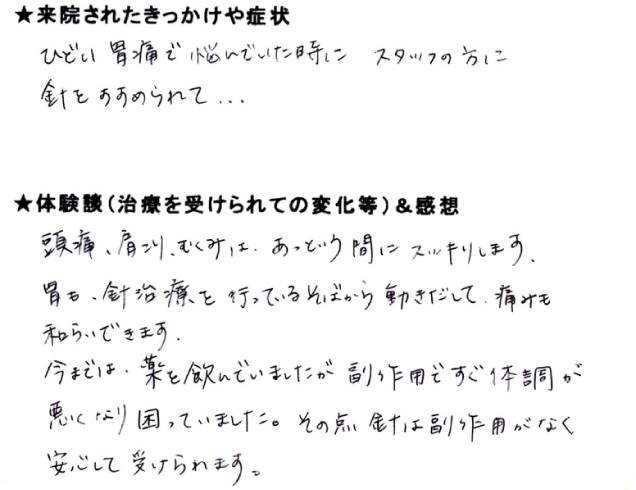 ★来院されたきっかけや症状
ひどい 胃痛で 悩んでいた時に スタッフの方に
針を すすめられて...
★体験談（治療を受けられての変化等）＆感想
頭痛、肩こり、むくみは、あっという間に スッキリします。
胃も、針治療を 行っているそばから 動きだして、痛みも
和らいできます。
今までは、薬を飲んでいましたが 副作用ですぐ体調が
悪くなり 困っていました。その点 針は副作用がなく
安心して 受けられます。